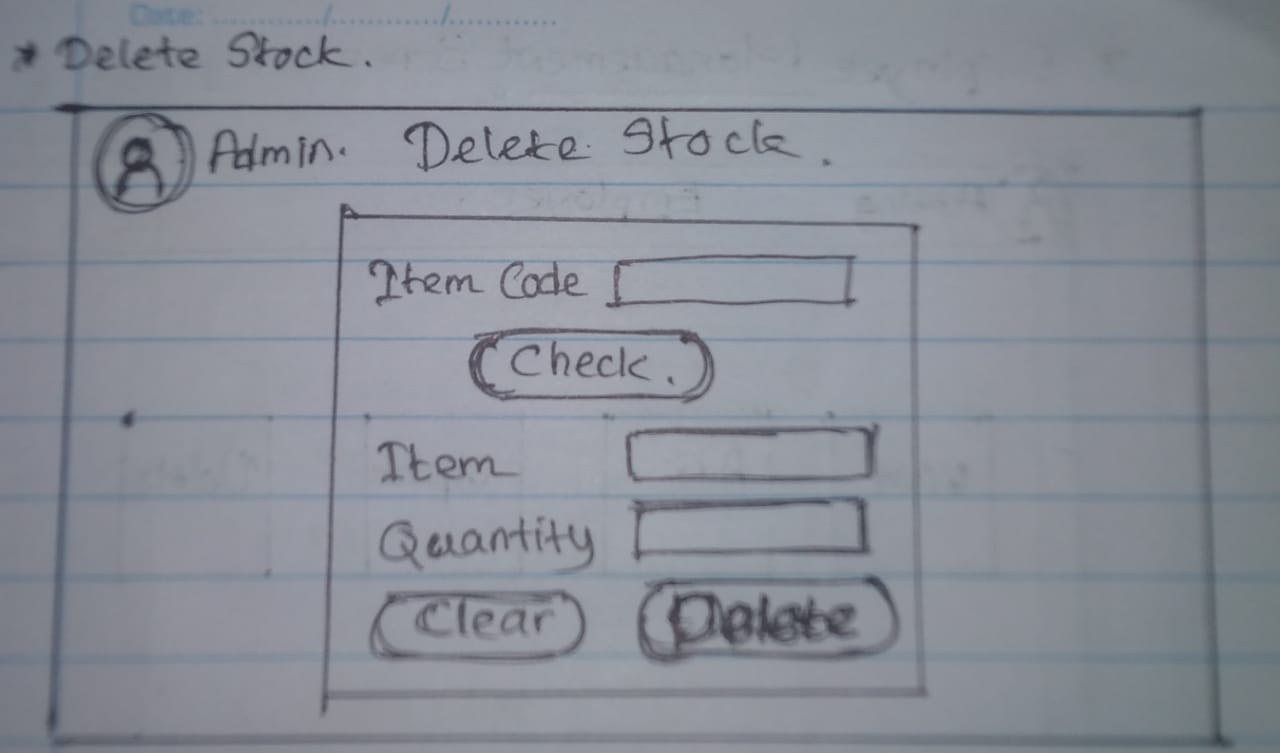 Date: ............/............/............
* Delete Stock.
Admin. Delete Stock.
Item Code
Check.
Item
Quantity
Clear Delete